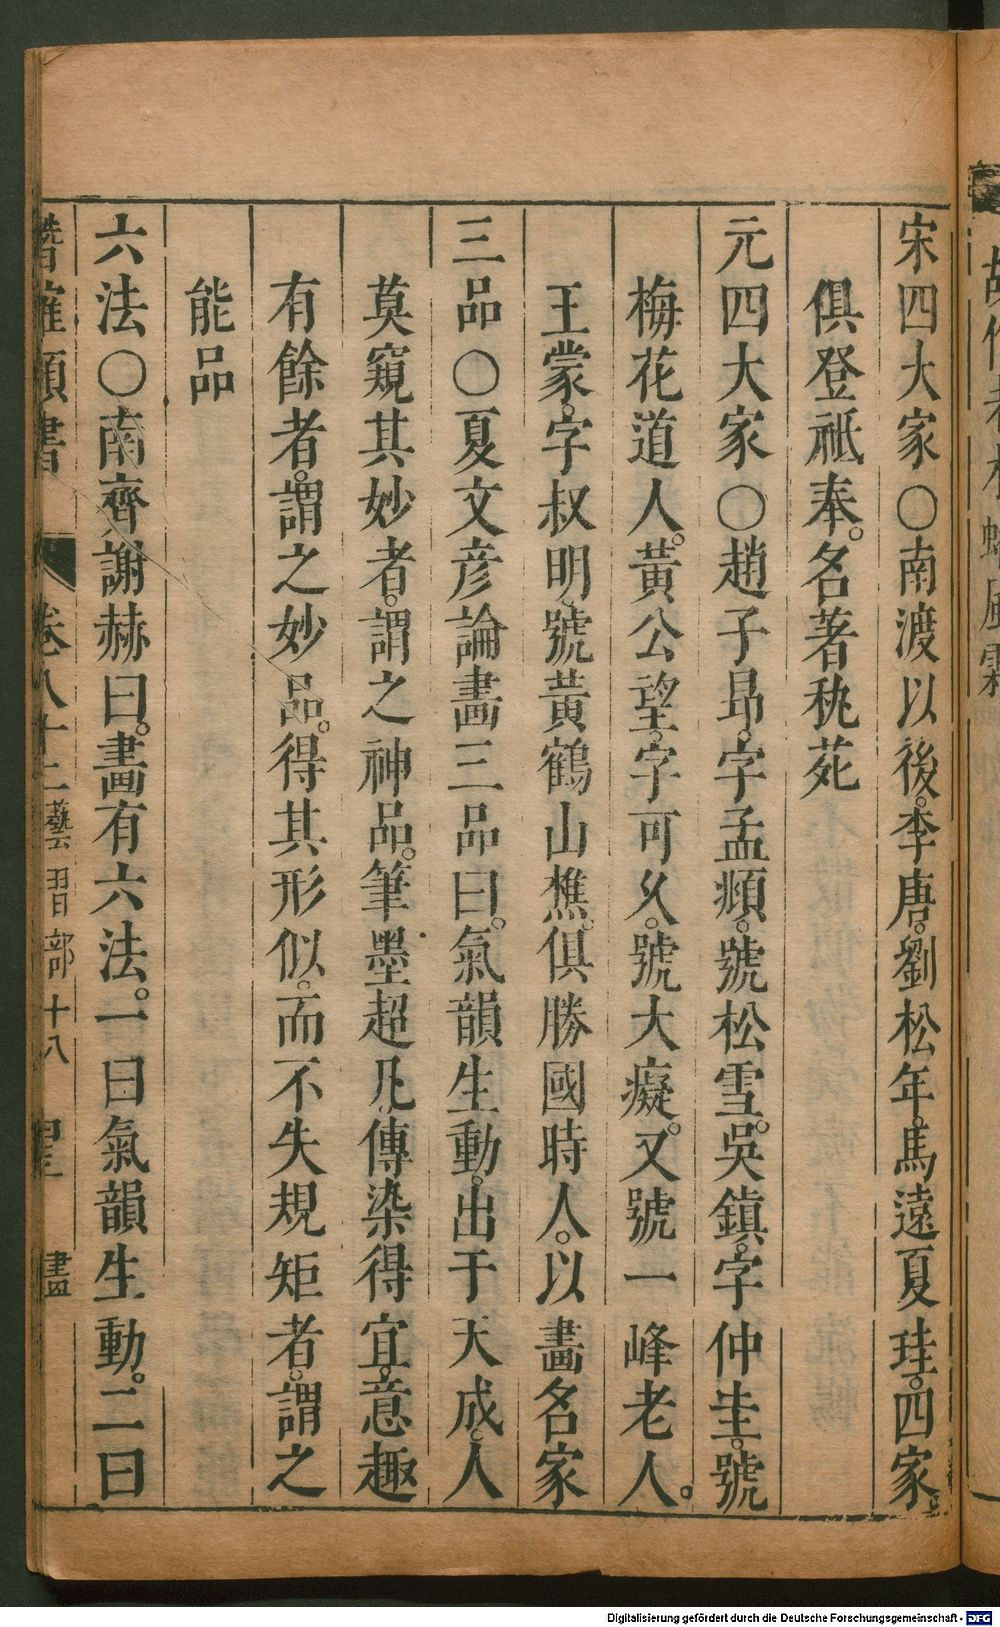 宋四大家〇南渡以後。李唐。劉松年。馬遠夏珪。四家
俱登祗奉。名著秇苑
元四大家〇趙子昂。字孟頫。號松雪。吳鎮。字仲圭。號
梅花道人。黃公望。字可久。號大癡。又號一峰老人。
王蒙。字叔明。號黃鶴山樵。俱勝國時人。以畫名家
三品〇夏文彥論畫三品曰。氣韻生動。出于天成。人
莫窺其妙者。謂之神品。筆墨超凡。傳染得宜。意趣
有餘者。謂之妙品。得其形似。而不失規矩者。謂之
能品
六法〇南齊謝赫曰。畫有六法。一曰氣韻生動。二曰
類書 卷八十二藝習部十八 畫
Digitalisierung gefördert durch die Deutsche Forschungsgemeinschaft - DFG